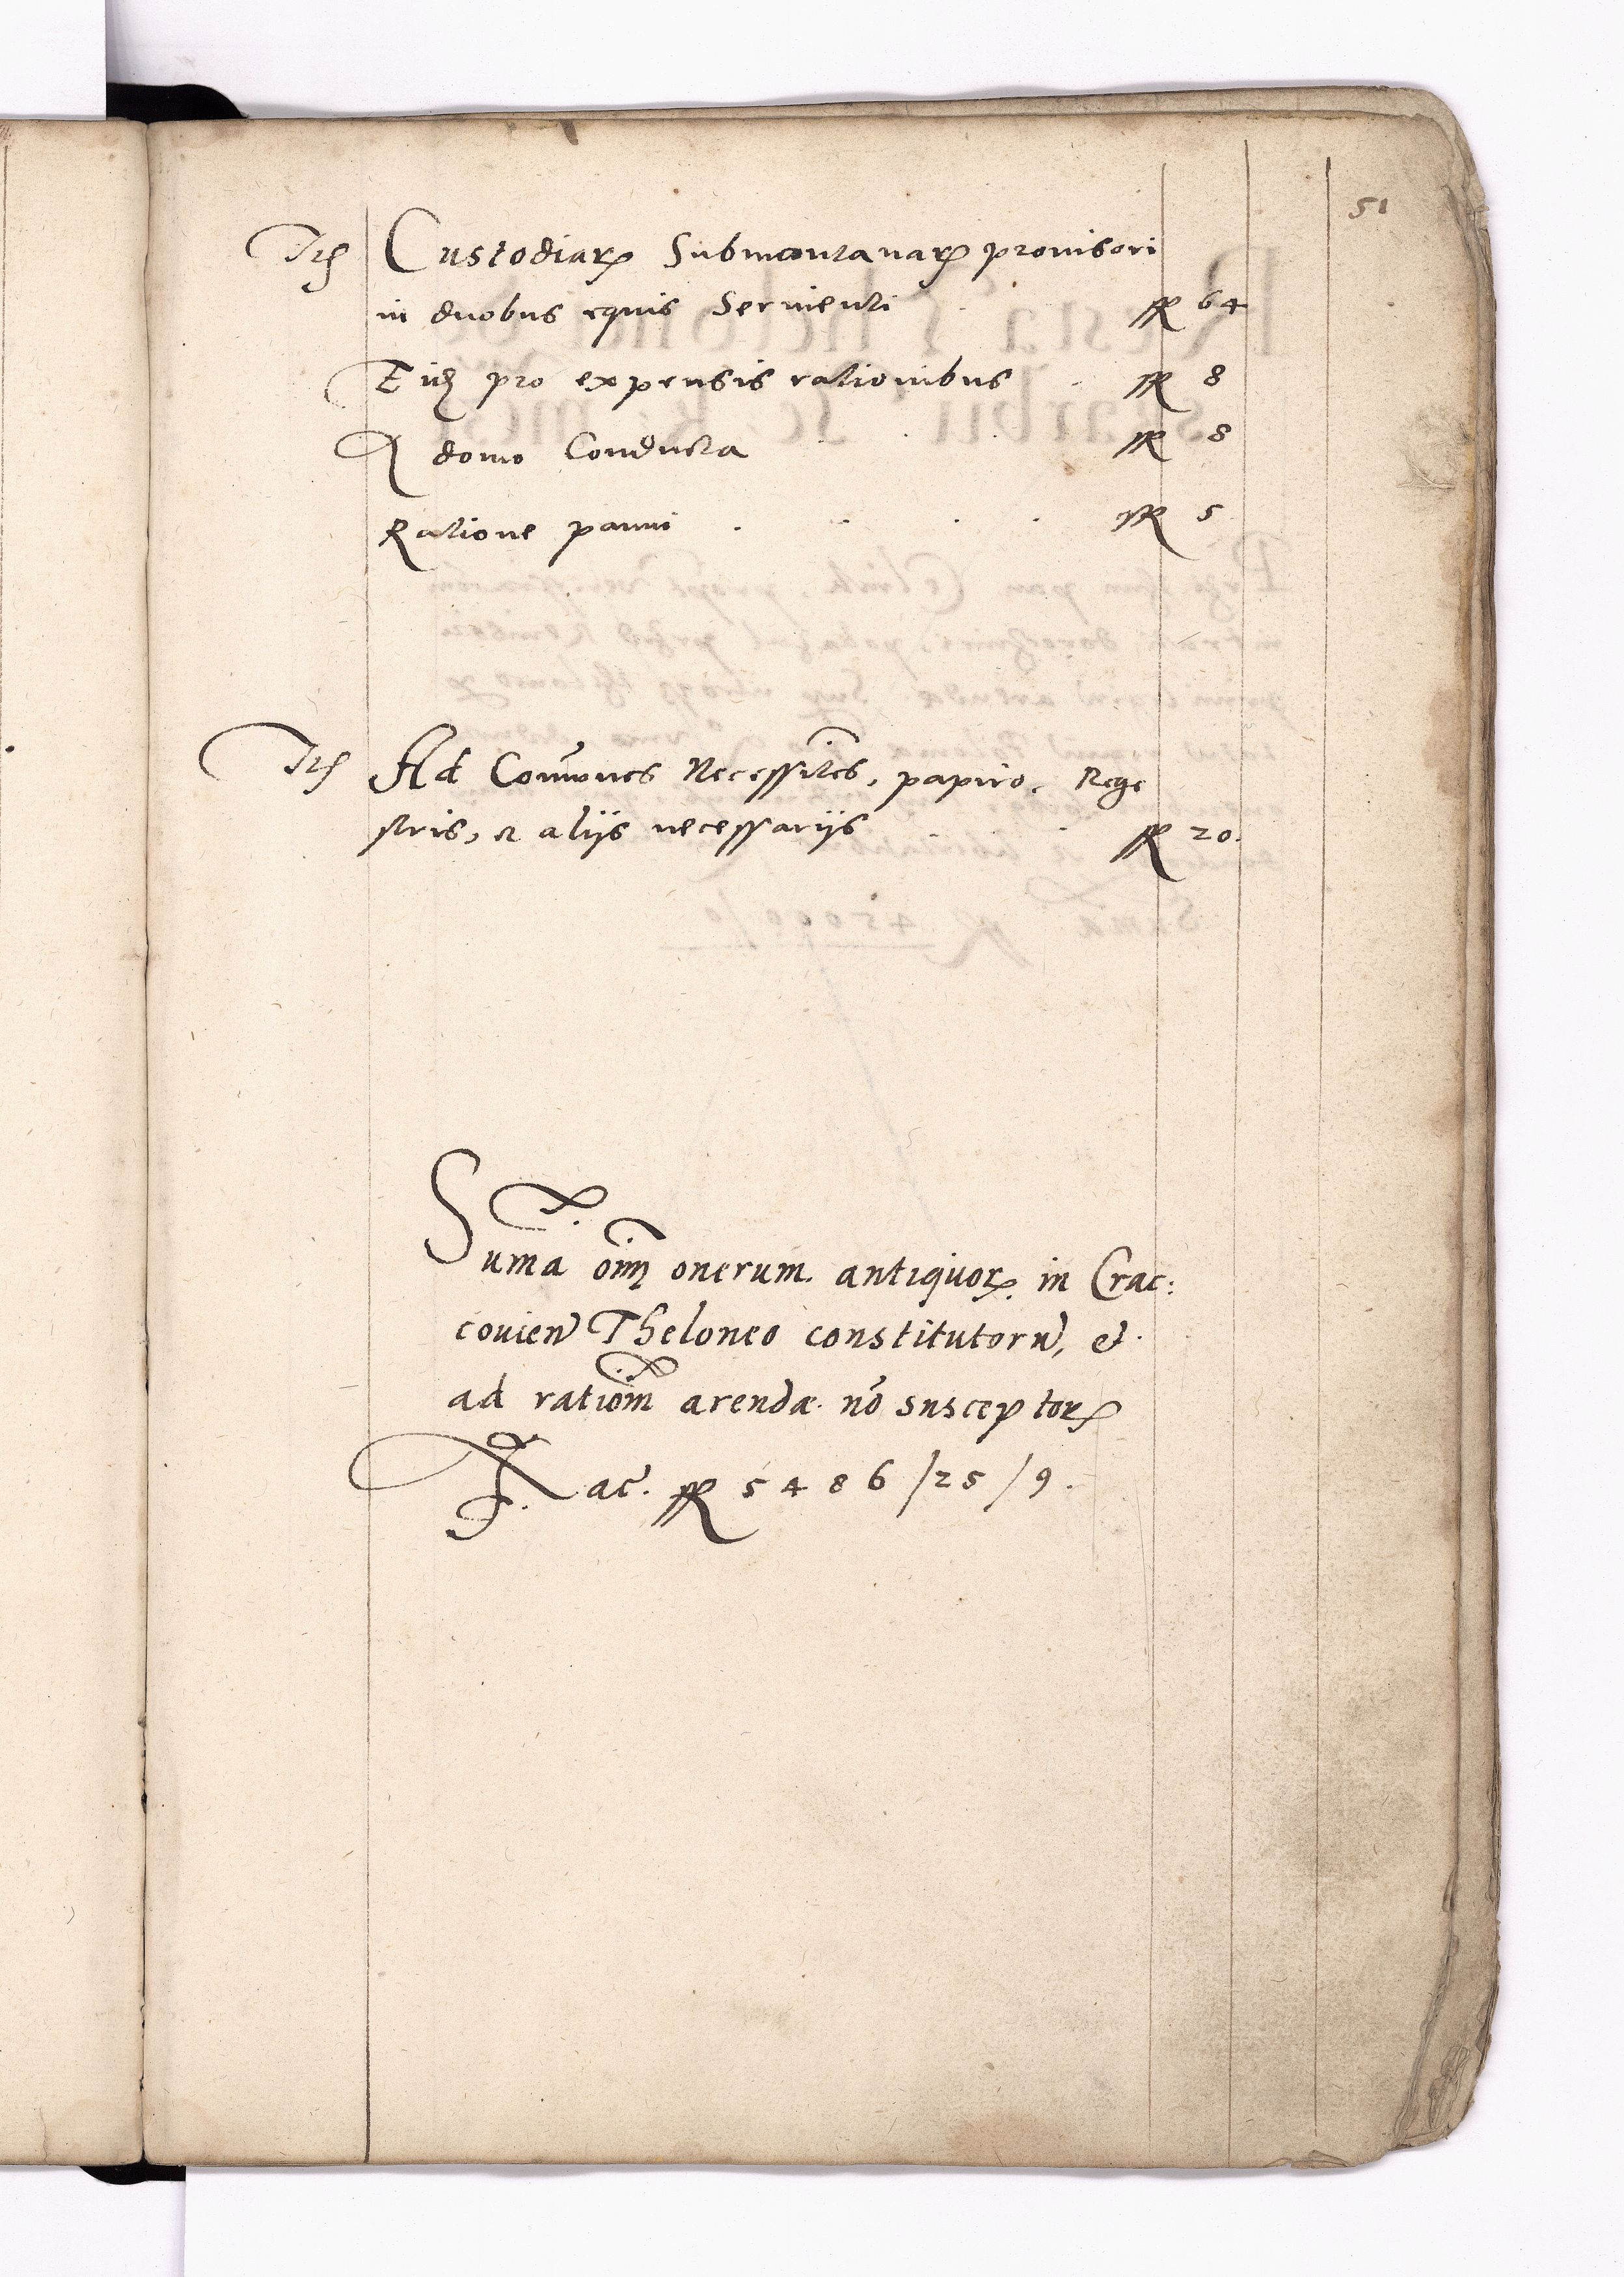 51
Itē Custodiarꝝ Submontanarꝝ prouisori
in duobus equis Seruienti fl 64
Eidē pro expensis rationibus fl 8
A domo Conducta fl 8
Ratione panni fl 5
Itē Ad Com̄unes Necessit̄es, papiro, Rege
stris, et alijs necessarijs fl 20.
Suma oīm onerum antiquorꝝ in Crac:
couien̄ Theloneo constitutorū, et
ad ratiōm arendæ nō susceptorꝝ
Fac̄. fl 5486/25/9.